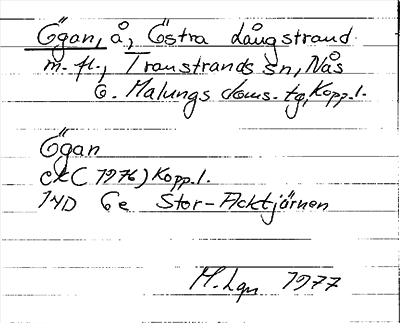 Ögan, å, Östra Långstrand
m. fl., Transtrands sn, Nås
o. Malungs doms. tg, Kopp. l.
Ögan
ekC 1976) Kopp. l.
14D 6e Stor-Acktjärnen
M. Lgn 1977